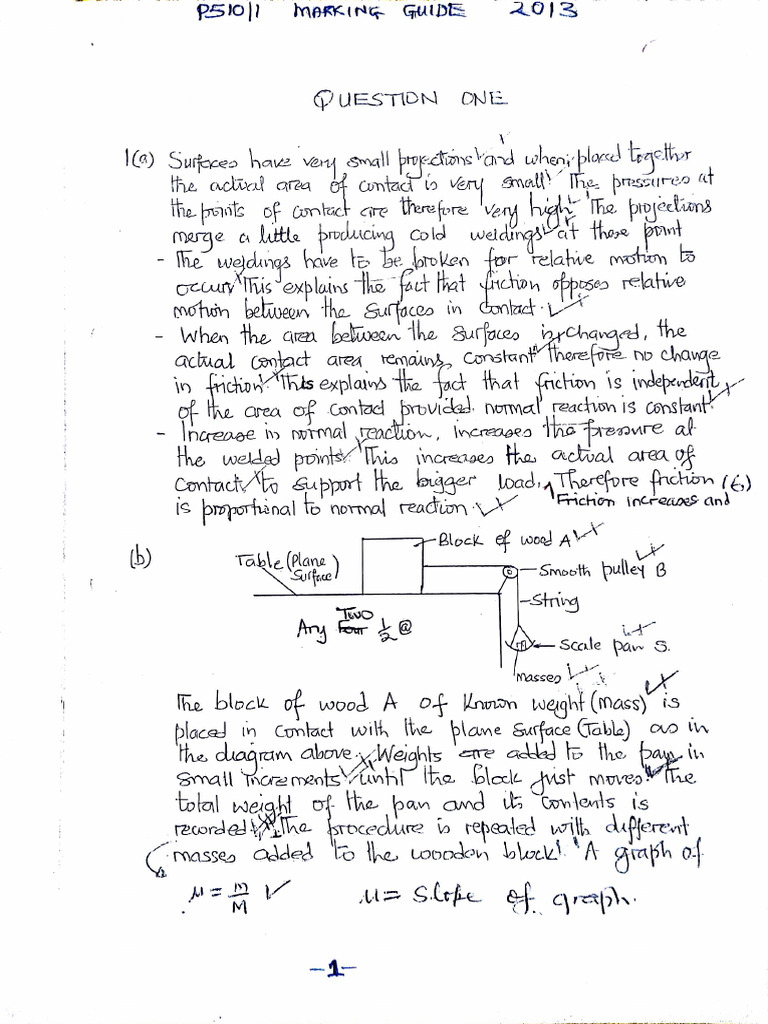 P510/1 MARKING GUIDE 2013
QUESTION ONE
1(a) Surfaces have very small projections and when placed together
the actual area of contact is very small. The pressures at
the points of contact are therefore very high. The projections
merge a little producing cold weldings at these point
- The weldings have to be broken for relative motion to
occur. This explains the fact that friction opposes relative
motion between the surfaces in contact.
- When the area between the surfaces is changed, the
actual contact area remains constant. Therefore no change
in friction. This explains the fact that friction is independent
of the area of contact provided normal reaction is constant.
- Increase in normal reaction, increases the pressure at
the welded points. This increases the actual area of
contact to support the bigger load, Therefore friction (6)
Friction increases and
is proportional to normal reaction.
(b)
Block of wood A
Table (Plane
Surface)
Smooth pulley B
String
TWO
Any Four 1/2 @
Scale pan S.
masses
The block of wood A of known weight (mass) is
placed in contact with the plane surface (Table) as in
the diagram above. Weights are added to the pan in
small increments until the block just moves. The
total weight of the pan and its contents is
recorded. The procedure is repeated with different
masses added to the wooden block. A graph of
μ = m/M
μ = Slope of graph.
-1-